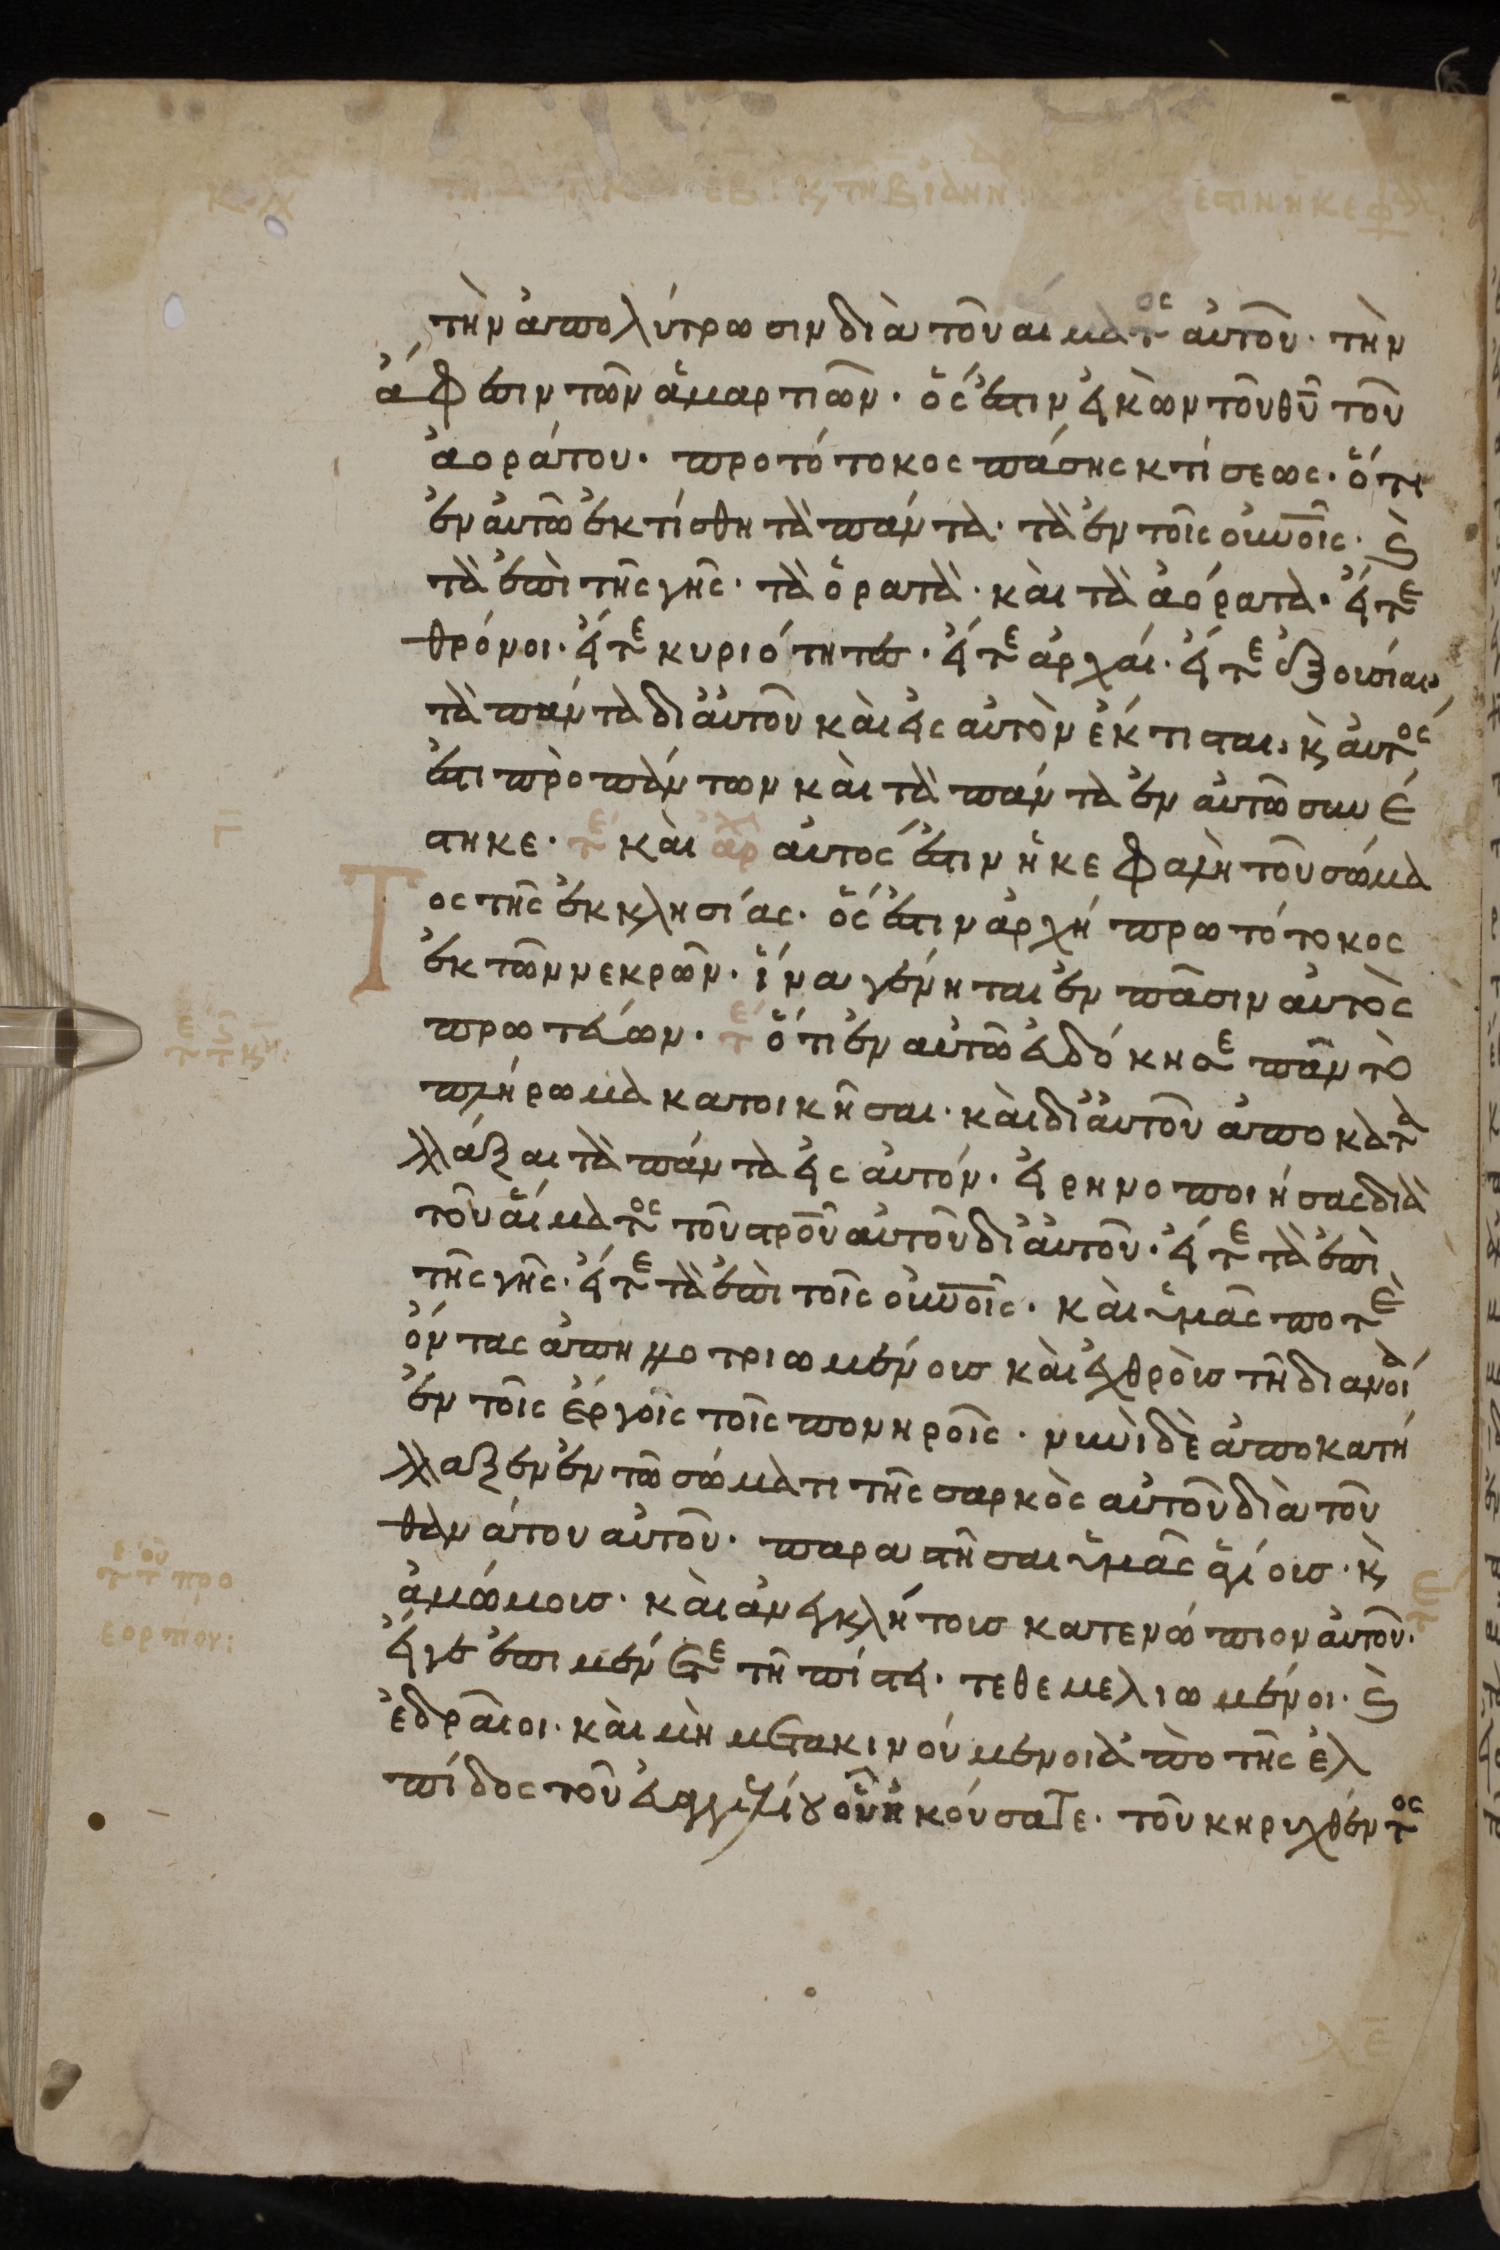 τὴν ἀπολύτρωσιν διὰ τοῦ αἵματος αὐτοῦ· τὴν
ἄφεσιν τῶν ἁμαρτιῶν· ὅς ἐστιν εἰκὼν τοῦ θ̅υ̅ τοῦ
ἀοράτου· προτότοκος πάσης κτίσεως· ὅτι
ἐν αὐτῶ ἐκτίσθη τὰ πάντα· τὰ ἐν τοῖς οὐνοῖς· ϗ
τὰ ἐπὶ τῆς γῆς· τὰ ὁρατὰ· καὶ τὰ ἀόρατα· εἴτε
θρόνοι· εἴτε κυριότητες· εἴτε ἀρχαί· εἴτε ἐξουσίαι
τὰ πάντα δι' αὐτοῦ καὶ εἰς αὐτὸν ἔκτισται· ϗ αὐτός
ἐστι πρὸ πάντων καὶ τὰ πάντα ἐν αὐτῶ συνέ
στηκε· τε καὶ αρχ αὐτός ἐστιν ἡ κεφαλὴ τοῦ σώμα
Τος τῆς ἐκκλησίας· ὅς ἐστιν ἀρχή πρωτότοκος
ἐκ τῶν νεκρῶν· ἵνα γένηται ἐν πᾶσιν αὐτὸς
πρωτεύων· τε ὅτι ἐν αὐτῶ εὐδόκησε πᾶν τὸ
πλήρωμα κατοικῆσαι· καὶ δι' αὐτοῦ ἀποκατα
λλάξαι τὰ πάντα εἰς αὐτόν· εἰρηνοποιήσας διὰ
τοῦ αἵματος τοῦ σ̅ρ̅ο̅ῦ αὐτοῦ δι' αὐτοῦ· εἴτε τὰ ἐπὶ
τῆς γῆς· εἴτε τὰ ἐπὶ τοῖς οὐνοῖς· καὶ ὑμᾶς ποτὲ
ὄντας ἀπηλλοτριωμένους καὶ ἐχθροὺς τῆ διανοία
ἐν τοῖς ἔργοις τοῖς πονηροῖς· νυνὶ δὲ ἀποκατή
λλαξεν ἐν τῶ σώματι τῆς σαρκὸς αὐτοῦ διὰ τοῦ
θανάτου αὐτοῦ· παραστῆσαι ὑμᾶς ἁγίους· ϗ
ἀμώμους· καὶ ἀνεγκλήτους κατενώπιον αὐτοῦ·
εἴγε ἐπιμένετε τῆ πίστει· τεθεμελιωμένοι· ϗ
ἑδραῖοι· καὶ μὴ μετακινούμενοι ἀπὸ τῆς ἐλ
πίδος τοῦ εὐαγγελίου οὗ ἠκούσατε· τοῦ κηρυχθέντος